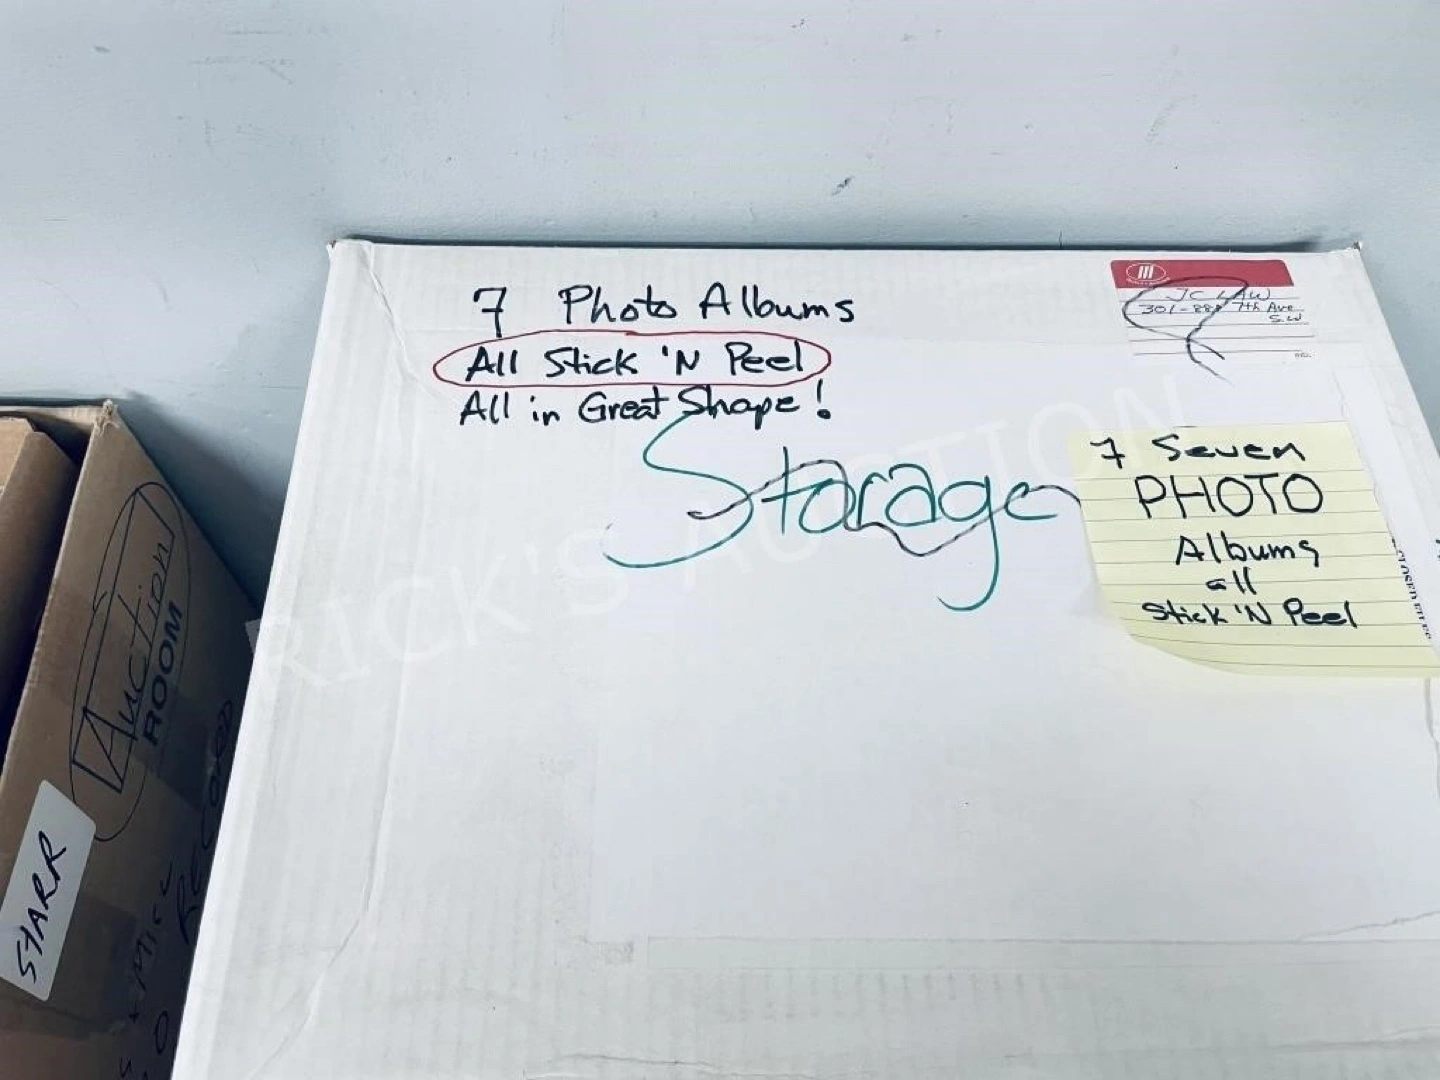 7 Photo Albums
All Stick 'N Peel
All in Great Shape!
Storage
JC LAW
301-888 7th Ave
S.W
7 Seven
PHOTO
Albums
all
Stick 'N Peel
Auction
ROOM
STARR
MISC
RECORD
RICK'S AUCTION